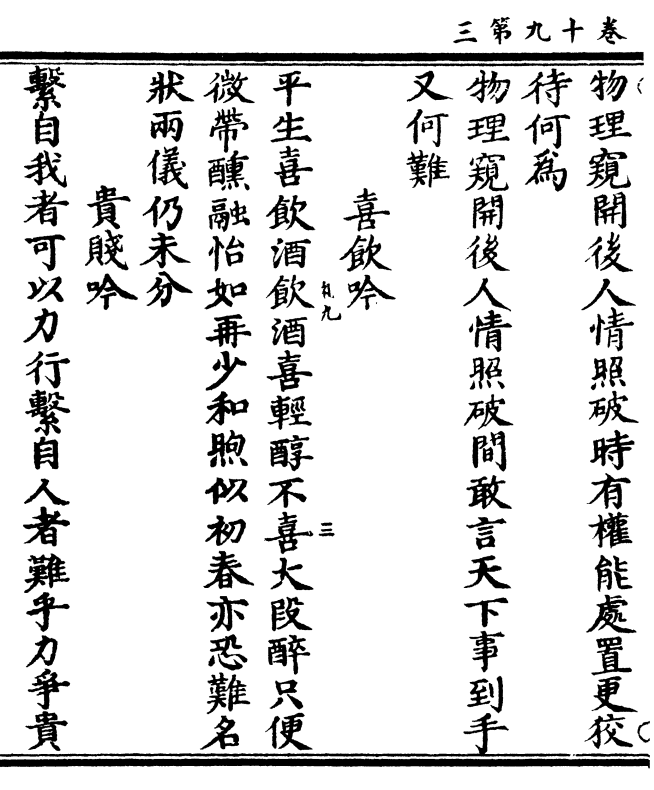 卷十九第三
物理窺開後人情照破時有權能處置更狡
待何爲
物理窺開後人情照破間敢言天下事到手
又何難
喜飲吟
九
三
平生喜飲酒飲酒喜輕醇不喜大段醉只便
微帶醺融怡如再少和煦似初春亦恐難名
狀兩儀仍未分
貴賤吟
繫自我者可以力行繫自人者難乎力爭貴